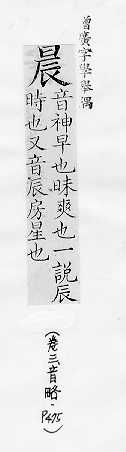 增廣字學舉隅
晨
音神早也昧爽也一說辰
時也又音辰房星也
(卷三、音略‧P475)